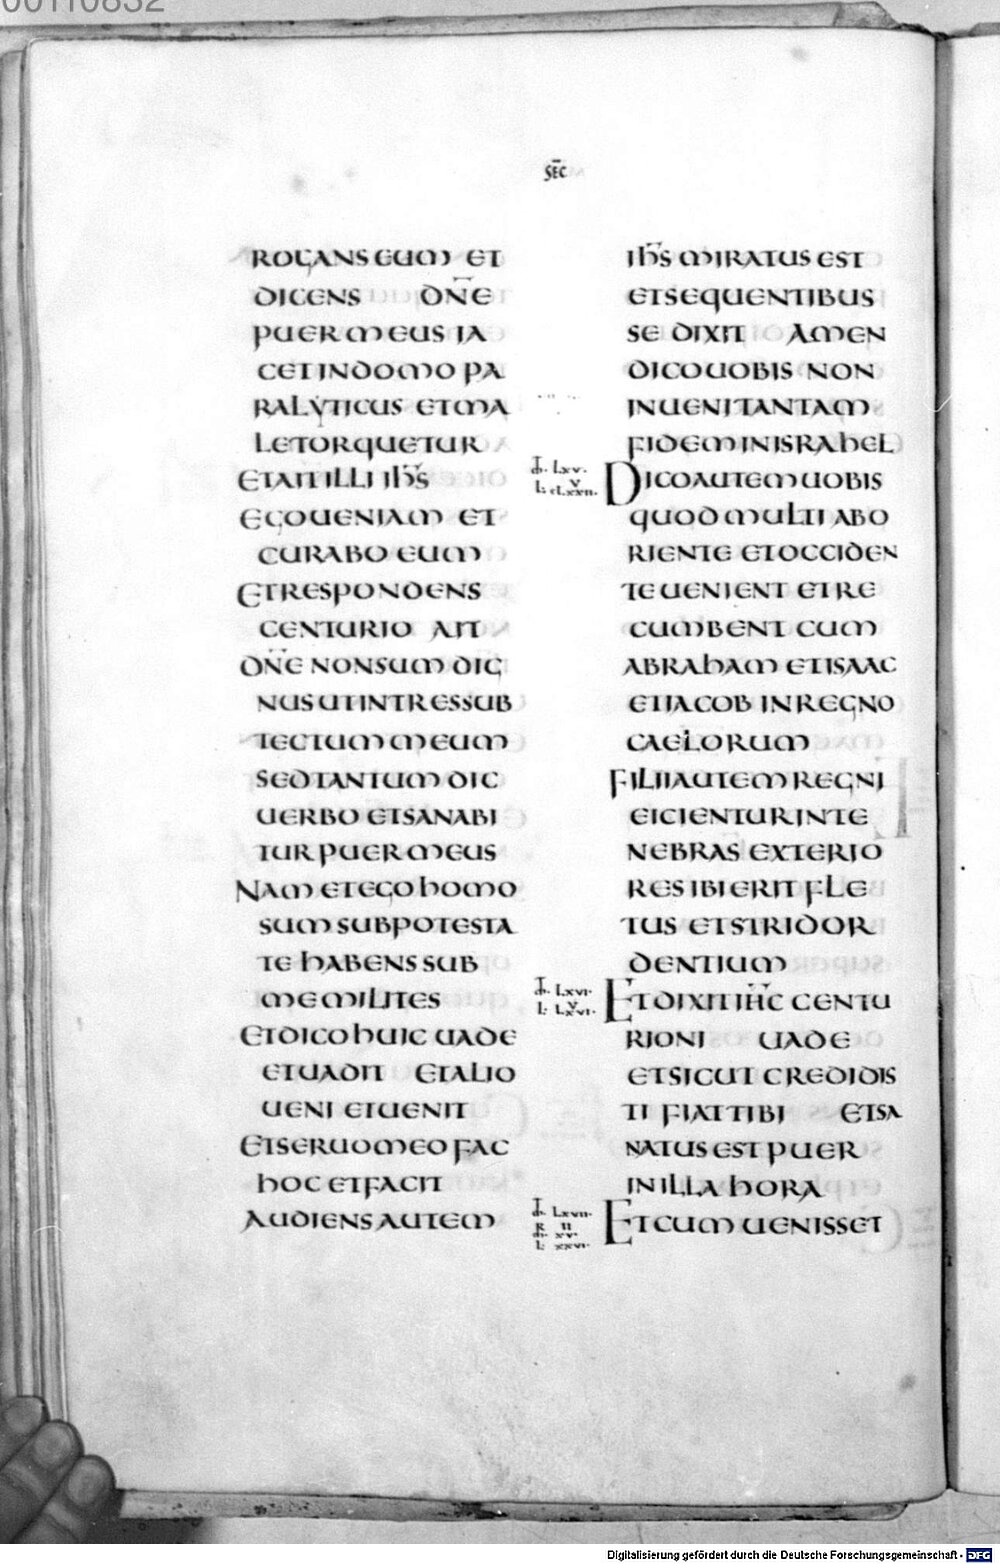 00110832
SEC̄
ROGANS EUM ET
DICENS DN̄E
PUER MEUS IA
CET IN DOMO PA
RALYTICUS ET MA
LE TORQUETUR
ET AIT ILLI IHS̄
EGO UENIAM ET
CURABO EUM
ET RESPONDENS
CENTURIO AIT
DN̄E NON SUM DIG
NUS UT INTRES SUB
TECTUM MEUM
SED TANTUM DIC
UERBO ET SANABI
TUR PUER MEUS
NAM ET EGO HOMO
SUM SUB POTESTA
TE HABENS SUB
ME MILITES
ET DICO HUIC UADE
ET UADIT ET ALIO
UENI ET UENIT
ET SERUO MEO FAC
HOC ET FACIT
AUDIENS AUTEM
IHS̄ MIRATUS EST
ET SEQUENTIBUS
SE DIXIT AMEN
DICO UOBIS NON
INUENI TANTAM
FIDEM IN ISRAHEL
LXV.
DICO AUTEM UOBIS
QUOD MULTI AB O
RIENTE ET OCCIDEN
TE UENIENT ET RE
CUMBENT CUM
ABRAHAM ET ISAAC
ET IACOB IN REGNO
CAELORUM
FILII AUTEM REGNI
EICIENTUR IN TE
NEBRAS EXTERIO
RES IBI ERIT FLE
TUS ET STRIDOR
DENTIUM
LXVI.
L: LXVI.
ET DIXIT IHC̄ CENTU
RIONI UADE
ET SICUT CREDIDIS
TI FIAT TIBI ET SA
NATUS EST PUER
IN ILLA HORA
LXVII.
R II
XV.
L: XXVI.
ET CUM UENISSET
Digitalisierung gefördert durch die Deutsche Forschungsgemeinschaft - DFG